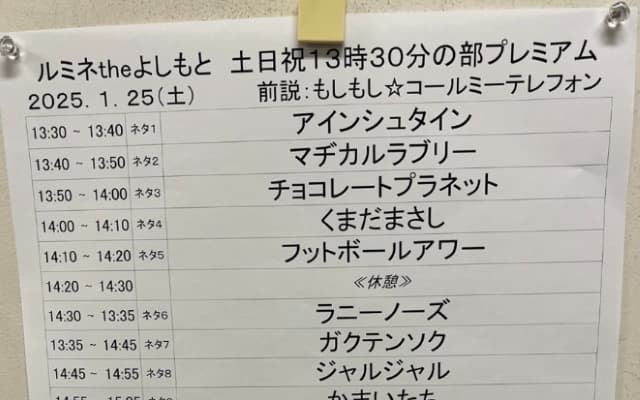 ルミネtheよしもと 土日祝13時30分の部プレミアム
2025.1.25(土) 前説：もしもし☆コールミーテレフォン
13:30 ~ 13:40 ネタ1 アインシュタイン
13:40 ~ 13:50 ネタ2 マヂカルラブリー
13:50 ~ 14:00 ネタ3 チョコレートプラネット
14:00 ~ 14:10 ネタ4 くまだまさし
14:10 ~ 14:20 ネタ5 フットボールアワー
14:20 ~ 14:30 ≪休憩≫
14:30 ~ 13:35 ネタ6 ラニーノーズ
13:35 ~ 14:45 ネタ7 ガクテンソク
14:45 ~ 14:55 ネタ8 ジャルジャル
かまいたち